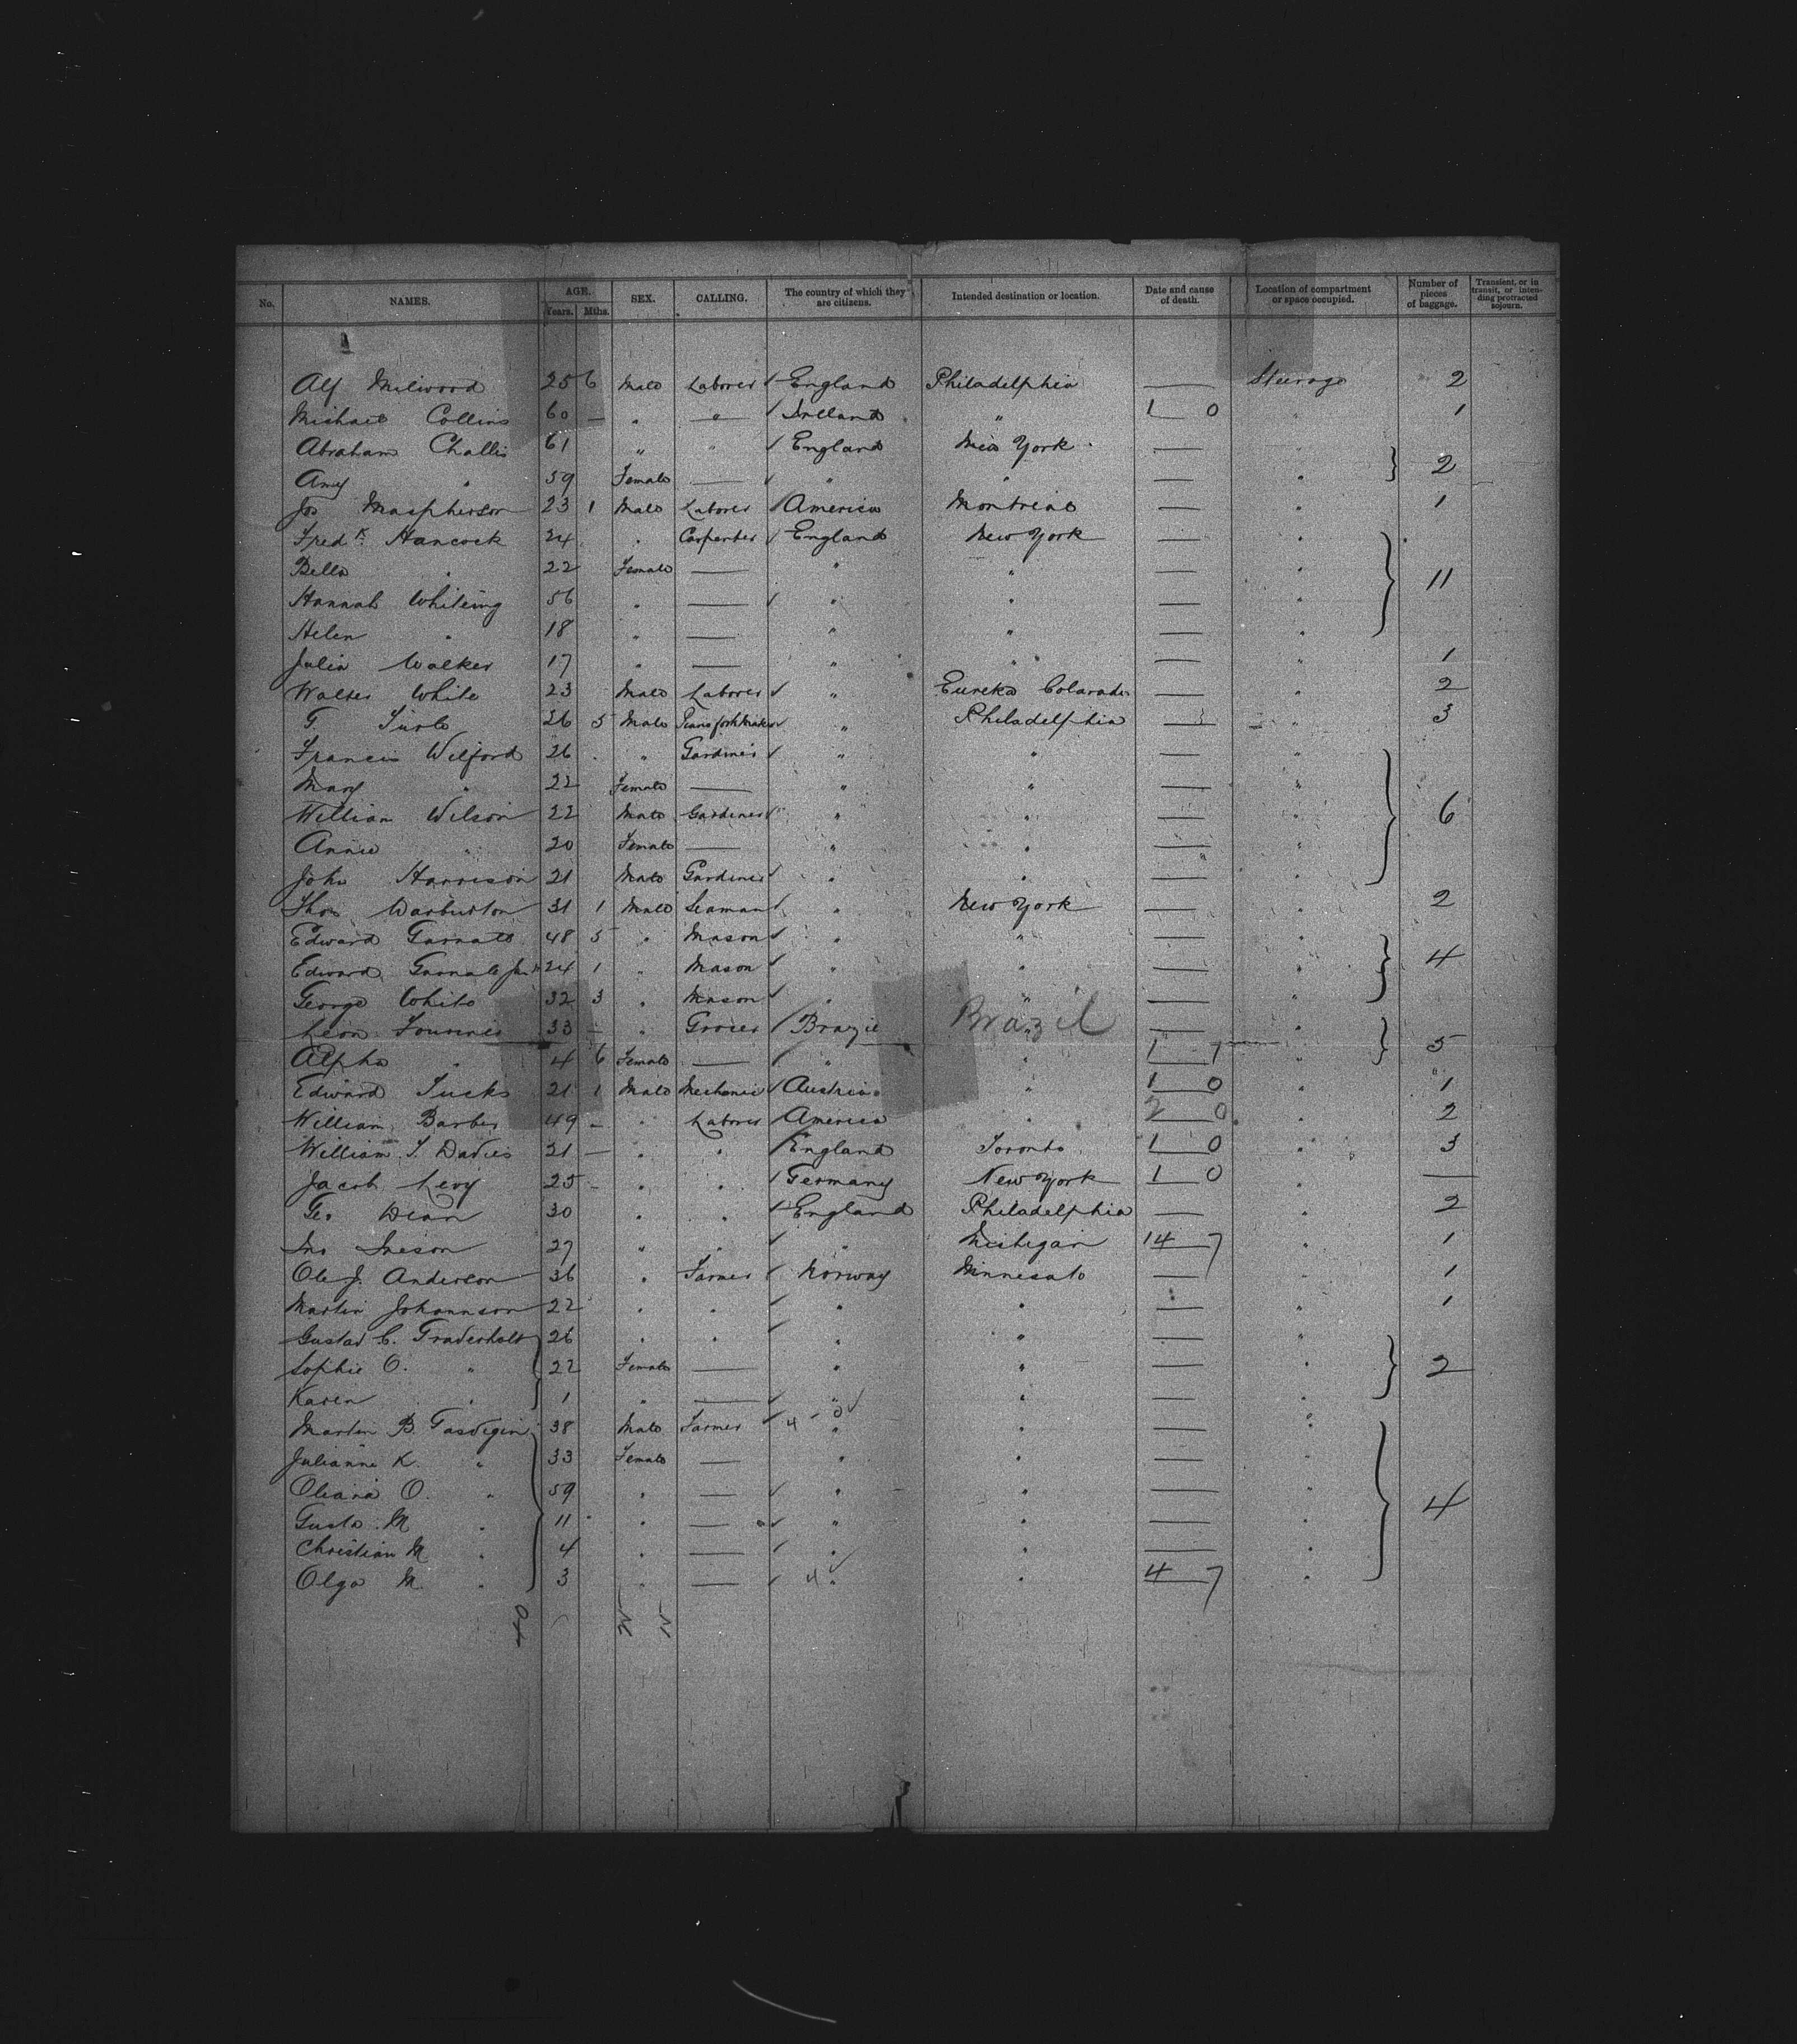 No. NAMES. AGE. Years. Mths. SEX. CALLING. The country of which they are citizens. Intended destination or location. Date and cause of death. Location of compartment or space occupied. Number of pieces of baggage. Transient, or in transit, or intending protracted sojourn.
Alf Milwood 25 6 Male Laborer England Philadelphia — Steerage 2
Michael Collins 60 — " " Ireland " 1 0 " 1
Abraham Challis 61 " " England New York — "
Amy " 59 Female — " " — " 2
Jos Macpherson 23 1 Male Laborer America Montreal — " 1
Fredk. Hancock 24 " Carpenter England New York — "
Bella " 22 Female — " " — " 11
Hannah Whiteing 56 " — " " — "
Helen " 18 " — " " — "
Julia Walker 17 " — " " — " 1
Walter White 23 Male Laborer " Eureka Colorado — " 2
G 26 5 Male " Philadelphia — " 3
Francis Wilford 26 " Gardiner " " — "
Mary " 22 Female — " " — "
William Wilson 22 Male Gardiner " " — " 6
Annie " 20 Female — " " — "
John Harrison 21 Male Gardiner " " — "
Thos Warburton 31 1 Male Seaman " New York — " 2
Edward 48 5 " Mason " " — "
Edward Junr 24 1 " Mason " " — " 4
George White 32 3 " Mason " " — "
Leon 33 — " Grocer Brazil " Brazil — "
Alpha " 4 6 Female — " " 1 7 " 5
Edward Tucks 21 1 Male Mechanic Austria " 1 0 " 1
William Barber 49 — " Laborer America " 2 0 " 2
William T. Davies 21 — " " England Toronto 1 0 " 3
Jacob Levy 25 — " " Germany New York 1 0 " —
Geo Dean 30 " " England Philadelphia — " 2
Jno 27 " " " Michigan 14 7 " 1
Ole J. Anderson 36 " Farmer Norway Minnesato — " 1
Martin Johannson 22 " " " " — " 1
Gustad C. 26 " " " " — "
Sophie O. " 22 Female — " " — " 2
Karen " 1 " — " " — "
Martin B. 38 Male Farmer 4 - 0 " " — "
Julianne K. " 33 Female — " " — "
Oleana O. " 59 " — " " — "
Gusta M " 11 " — " " — " 4
Christian M " 4 " — " " — "
Olga M " 3 " — 4 " " 4 7 "
40